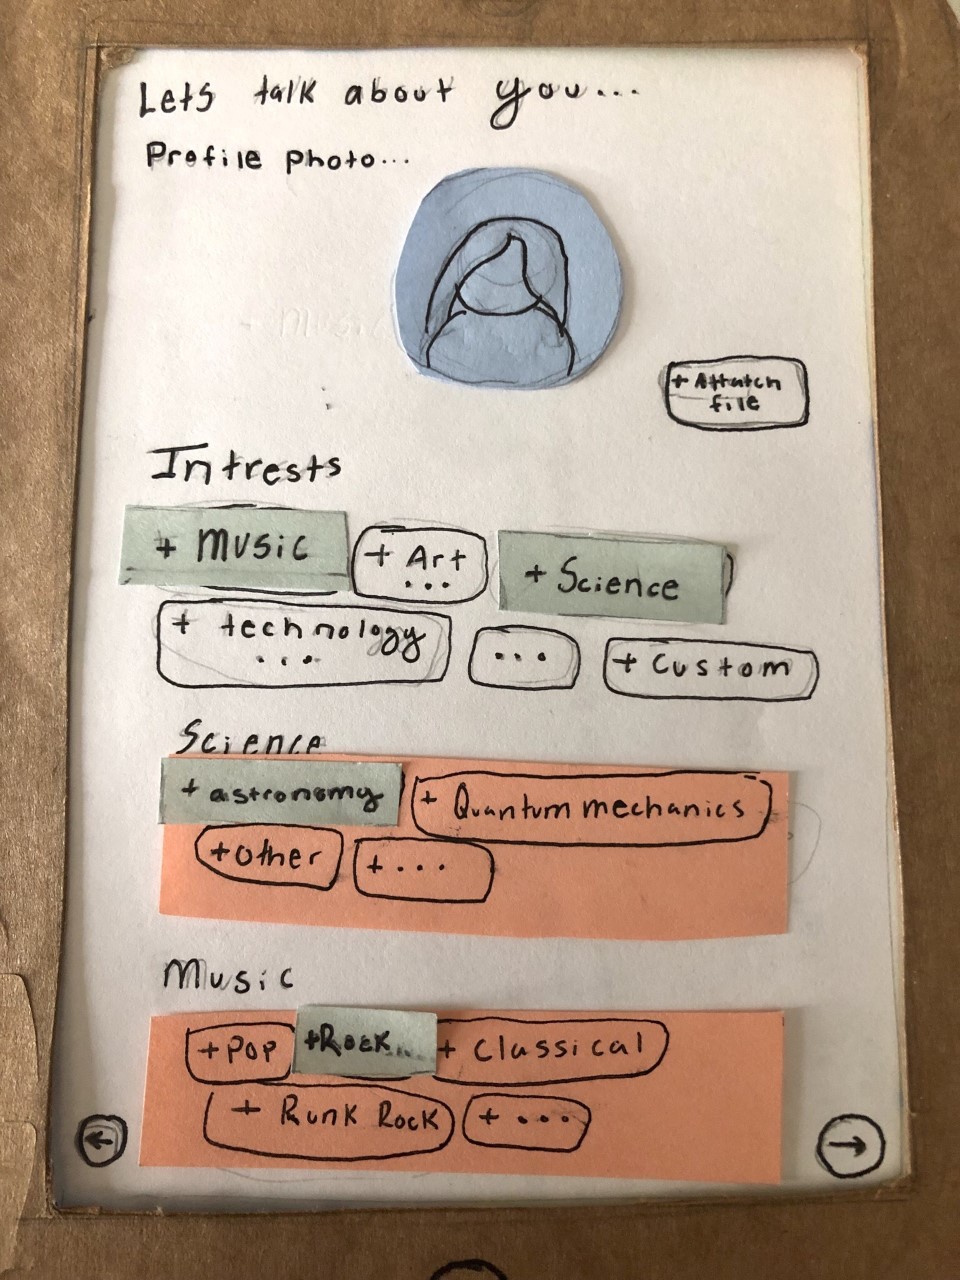 Lets talk about you...
Profile photo...
+ Attatch
file
Intrests
+ Music + Art ... + Science
+ technology ... ... + Custom
Science
+ astronomy + Quantum mechanics
+ other + ...
Music
+ Pop + Rock... + Classical
+ Punk Rock + ...